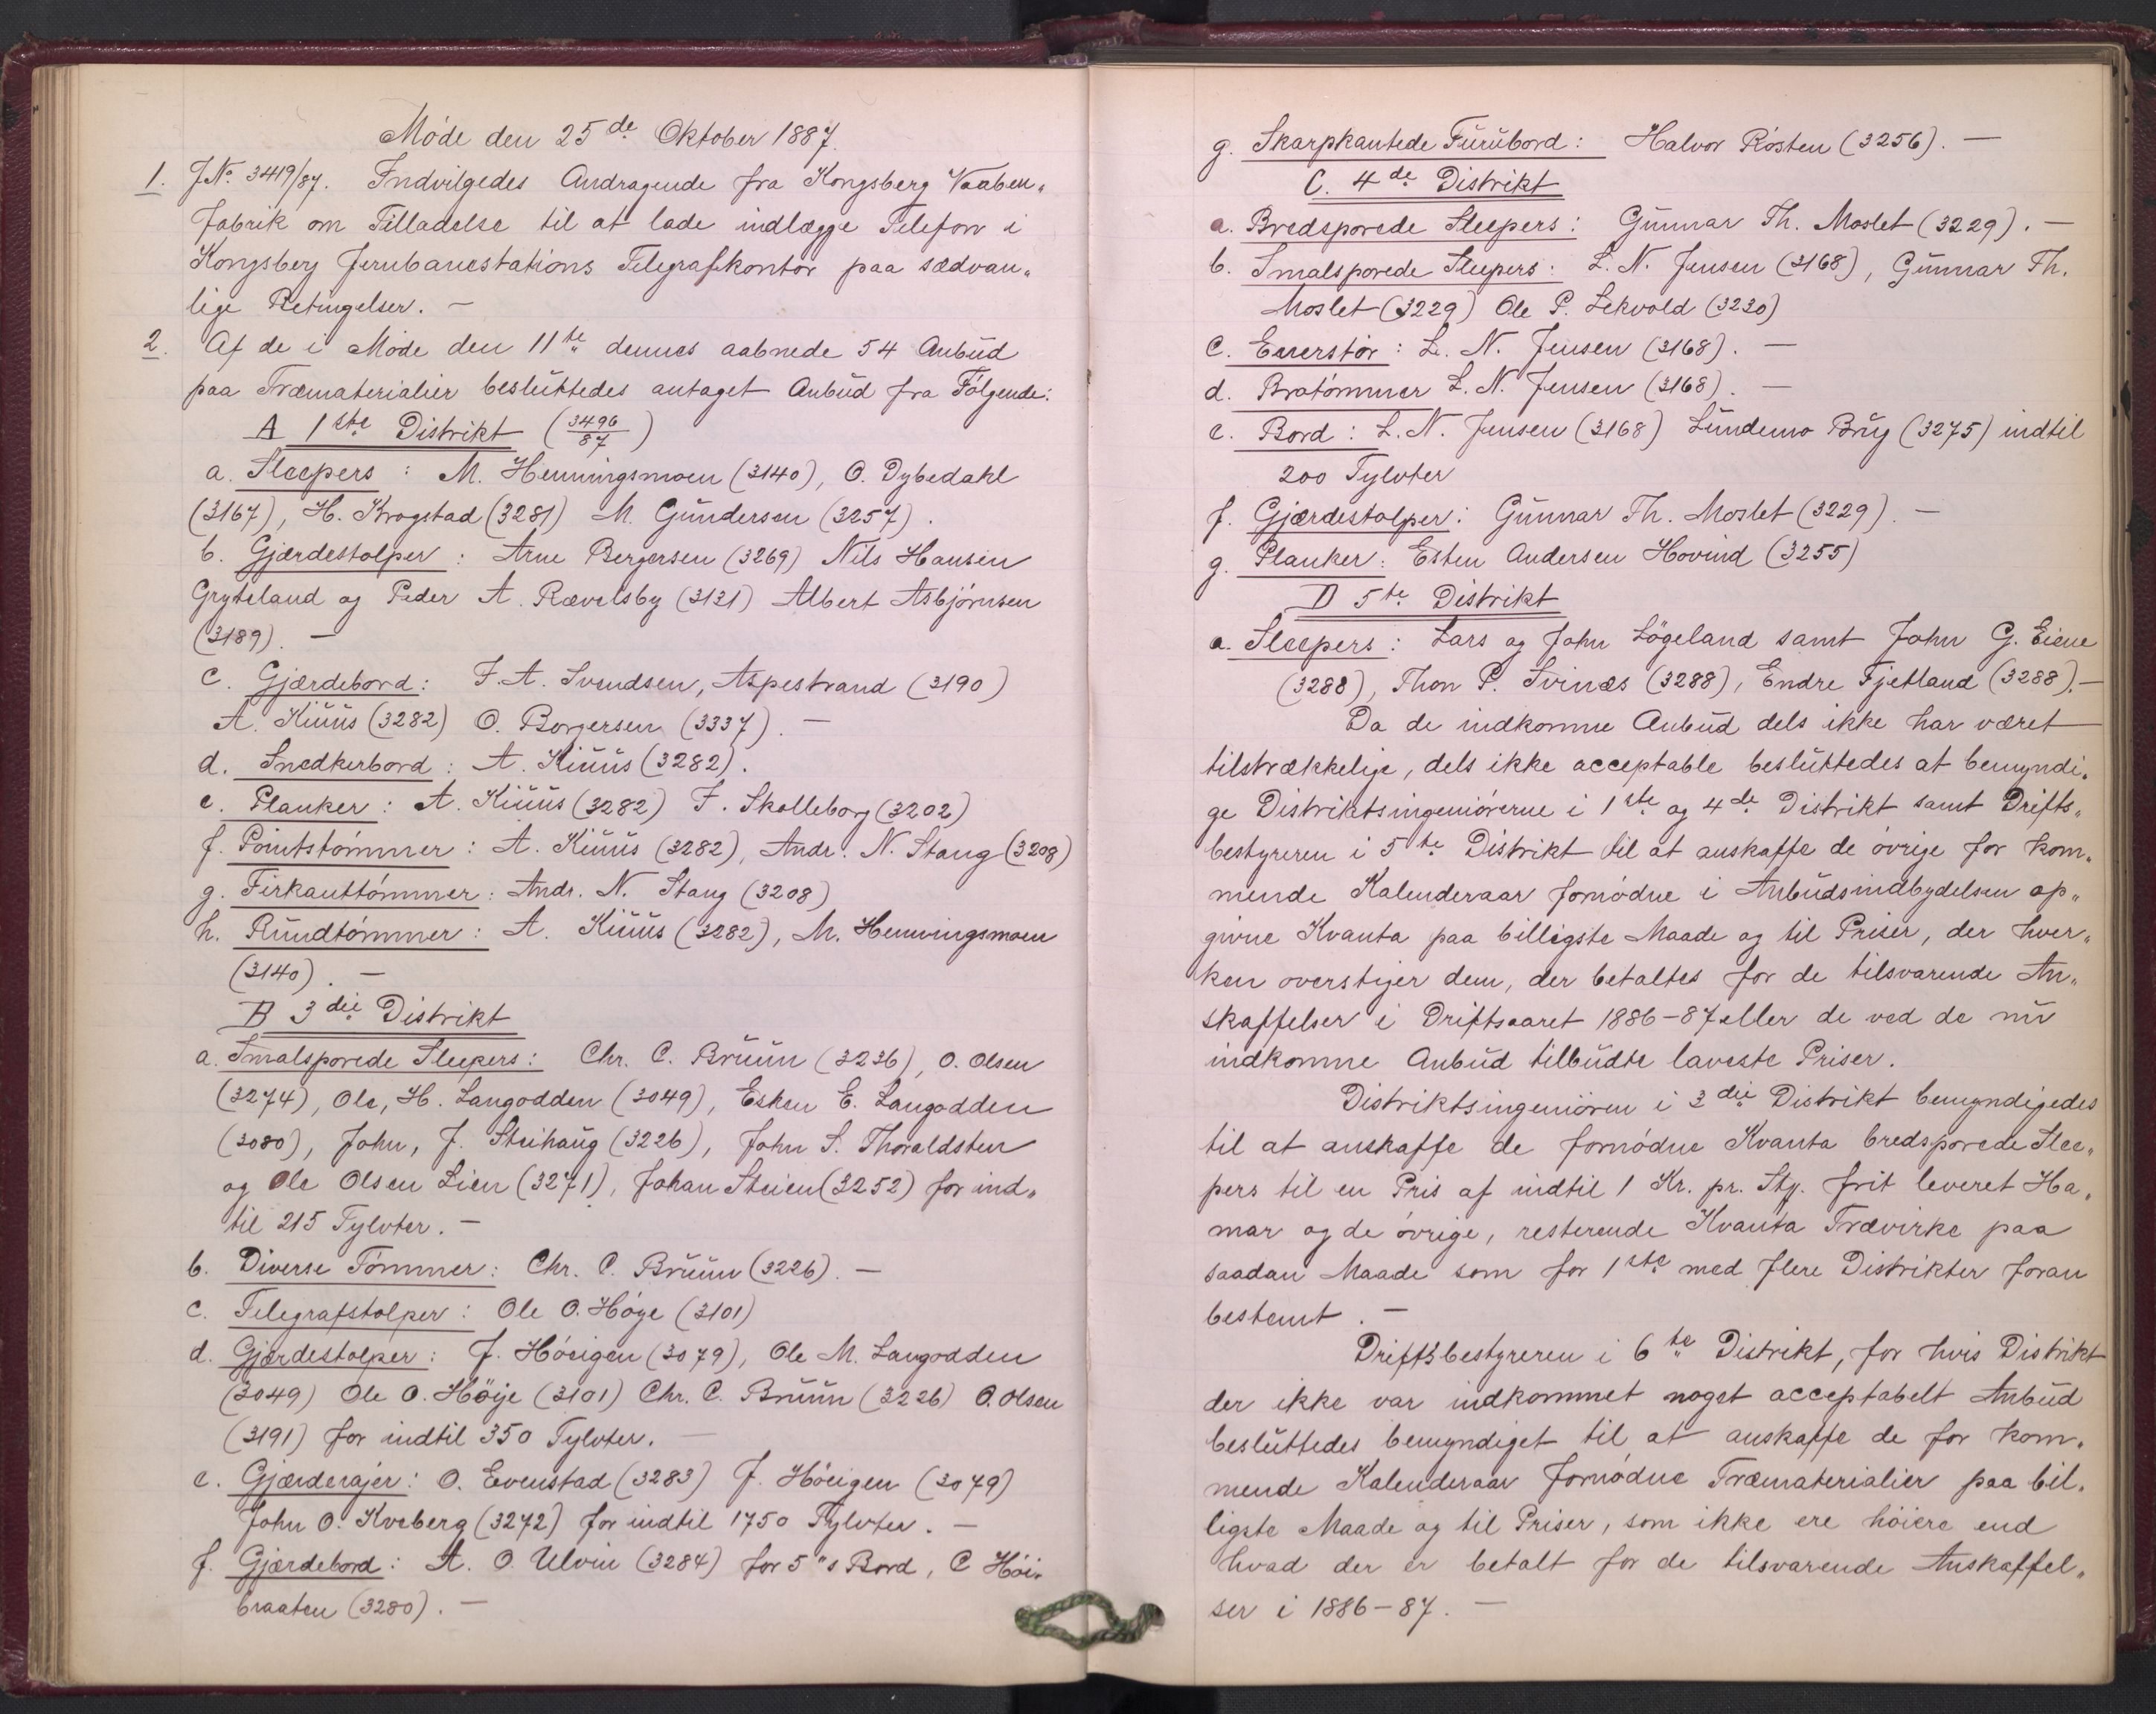 Møde den 25de Oktober 1887.
1. JNo. 3419/87. Indvilgedes Andragende fra Kongsberg Vaaben„
fabrik om Tilladelse til at lade indlægge Telefon i
Kongsberg Jernbanestations Telegrafkontor paa sædvan„
lige Betingelser. —
2. Af de i Møde den 11te dennes aabnede 54 Anbud
paa Træmaterialier besluttedes antaget Anbud fra Følgende:
A 1ste Distrikt (3496/87)
a. Sleepers: M. Henningsmoen (3140), O. Dybedahl
(3167), H. Krogstad (3281) M. Gundersen (3257).
b. Gjærdestolper: Arne Bergersen (3269) Nils Hansen
Gryteland og Peder A. Rævelsby (3131) Albert Asbjørnsen
(3189). —
c. Gjærdebord: F. A. Svendsen, Aspestrand (3190)
A. Kiuus (3282) O. Borgersen (3337). —
d. Snedkerbord: A. Kiuus (3282).
e. Planker: A. Kiuus (3282) F. Skolleborg (3202)
f. Pointstømmer: A. Kiuus (3282), Andr. N. Stang (3208)
g. Firkanttømmer: Andr. N. Stang (3208)
h. Rundtømmer: A. Kiuus (3282), M. Henningsmoen
(3140). —
B 3die Distrikt
a. Smalsporede Sleepers: Chr. C. Bruun (3236), O. Olsen
(3274), Ole, H. Langodden (3049), Esten E. Langodden
(3080), John, J. Steihaug (3226), John S. Thoraldsten
og Ole Olsen Lien (3271), Johan Steien (3252) for ind„
til 215 Tylvter. —
b. Diverse Tømmer: Chr. C. Bruun (3226). —
c. Telegrafstolper: Ole O. Høye (3101)
d. Gjærdestolper: J. Høeigen (3079), Ole M. Langodden
(3049) Ole O. Höye (3101) Chr. C. Bruun (3226) O. Olsen
(3191) for indtil 350 Tylvter. —
e. Gjærderajer: O. Evenstad (3283) J. Höeigen (3079)
John O. Kveberg (3272) for indtil 1750 Tylvter. —
f. Gjærdebord: A. O. Ulvin (3284) for 5"s Bord, C Höi„
braaten (3280). —
g. Skarpkantede Furubord: Halvor Røsten (3256). —
C. 4de Distrikt
a. Bredsporede Sleepers: Gunnar Th. Moslet (3229). —
b. Smalsporede Sleepers: L. N. Jensen (3168), Gunnar Th.
Moslet (3229) Ole P. Lekvold (3230)
c. Enerstør: L. N. Jensen (3168). —
d. Bratømmer L. N. Jensen (3168). —
e. Bord: L. N. Jensen (3168) Lundemo Brug (3275) indtil
200 Tylvter
f. Gjærdestolper: Gunnar Th. Moslet (3229). —
g. Planker: Esten Andersen Hovind (3255)
D 5te Distrikt
a. Sleepers: Lars og John Lögeland samt John G. Eiene
(3288), Thon P. Svinæs (3288), Endre Fjetland (3288). —
Da de indkomne Anbud dels ikke har været
tilstrækkelige, dels ikke acceptable besluttedes at bemyndi„
ge Distriktsingeniørerne i 1ste og 4de Distrikt samt Drifts„
bestyreren i 5te Distrikt til at anskaffe de øvrige for kom„
mende Kalenderaar fornødne i Anbudsindbydelsen op„
givne Kvanta paa billigste Maade og til Priser, der hver„
ken overstiger dem, der betaltes for de tilsvarende An„
skaffelser i Driftsaaret 1886-87 eller de ved de nu
indkomne Anbud tilbudte laveste Priser.
Distriktsingeniøren i 3die Distrikt bemyndigedes
til at anskaffe de fornødne Kvanta bredsporede Slee„
pers til en Pris af indtil 1 Kr. pr. Sty. frit leveret Ha„
mar og de øvrige, resterende Kvanta Trævirke paa
saadan Maade som for 1ste med flere Distrikter foran
bestemt. —
Driftsbestyreren i 6te Distrikt, for hvis Distrikt
der ikke var indkommet noget acceptabelt Anbud
besluttedes bemyndiget til at anskaffe de for kom„
mende Kalenderaar fornødne Træmaterialier paa bil„
ligste Maade og til Priser, som ikke ere höiere end
hvad der er betalt for de tilsvarende Anskaffel„
ser i 1886-87. —